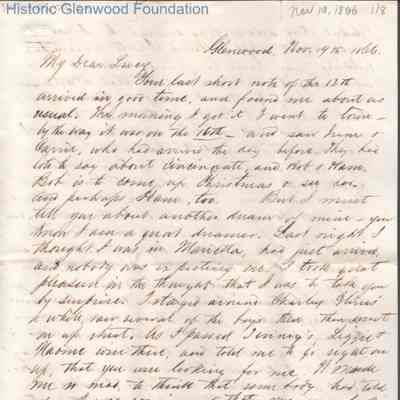 Historic Glenwood Foundation
Nov 19, 1866 1/8
Glenwood Nov. 19th 1866.
My Dear Lucy
Your last short note of the 13th
arrived in good time, and found me about as
usual. The morning I got it I went to town—
by the way it was on the 16th— and saw June &
Carrie, who had arrived the day before. They had
lots to say about Cincinnati, and Bob & Ham.
Bob is to come up Christmas & see us,
and perhaps Ham, too. But I must
tell you about another dream of mine— you
know I am a great dreamer. Last night I
thought I was in Marietta, had just arrived,
and nobody was expecting me. I took great
pleasure in the thought that I was to take you
by surprise. I stayed around Charley
a while saw several of the boys there, then went
on up street. As I passed Tinney's, Lizzie &
were there, and told me to go right on
up, that you were looking for me. It made
me so mad, to think that some body had told